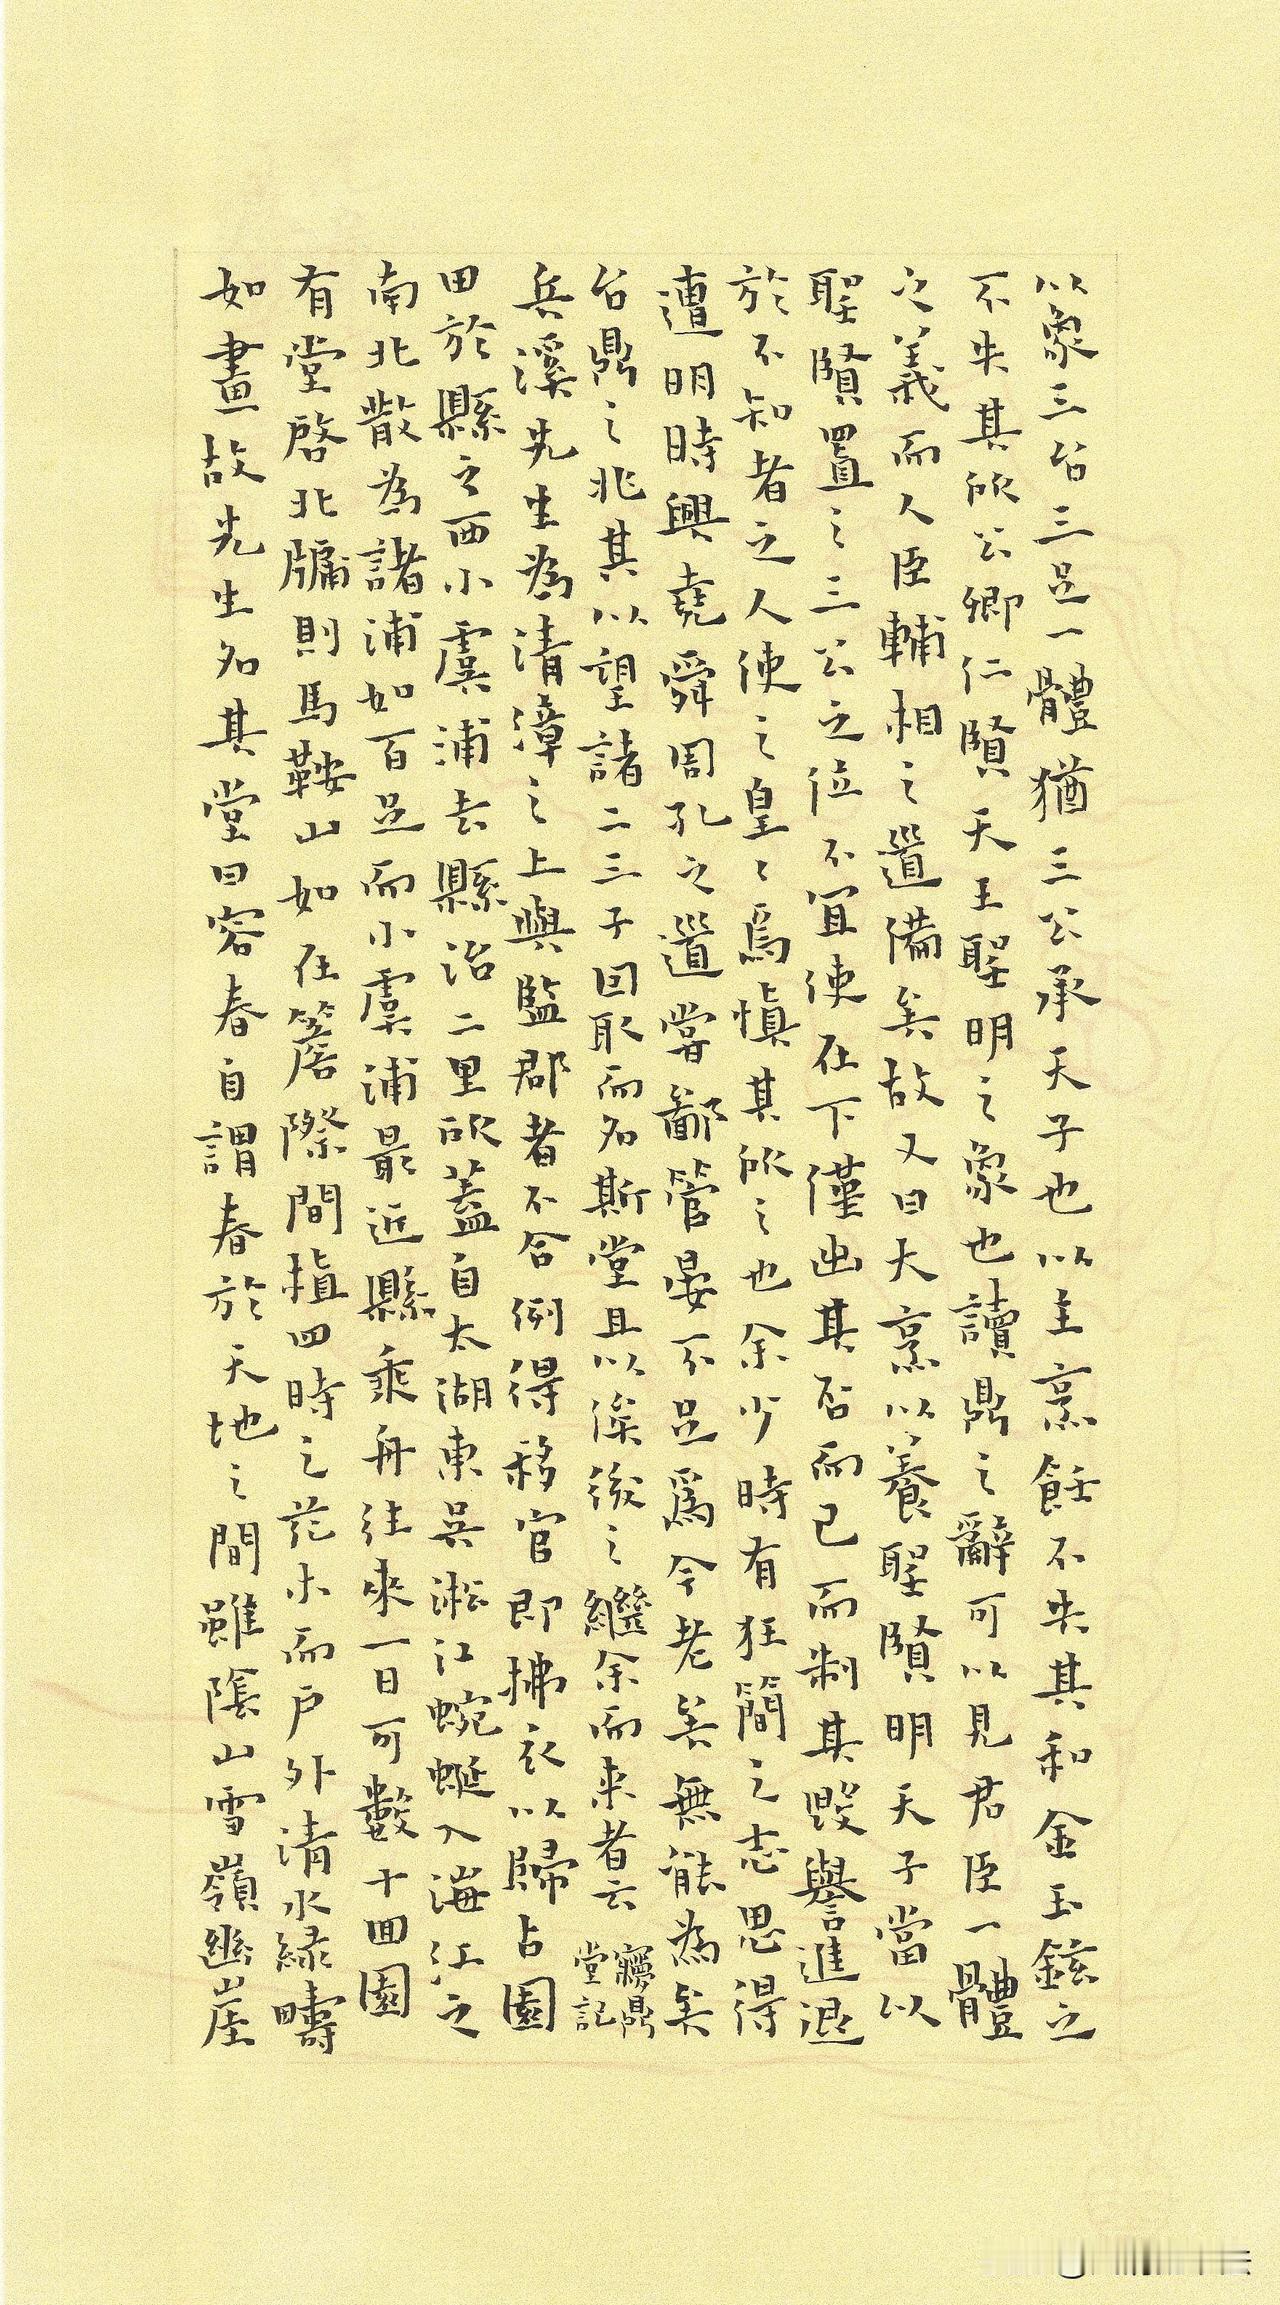 以象三台三足一體猶三公承天子也以主烹飪不失其和金玉鉉之
不失其所公卿仁賢天王聖明之象也讀鼎之辭可以見君臣一體
之義而人臣輔相之道備矣故又曰大烹以養聖賢明天子當以
聖賢置之三公之位不宜使在下僅出其否而已而制其毀譽進退
於不知者之人使之皇〻焉慎其所之也余少時有狂簡之志思得
遭明時興堯舜周孔之道嘗鄙管晏不足爲今老矣無能為矣
台鼎之兆其以望諸二三子因取而名斯堂且以俟後之繼余而来者云 夢鼎堂記
兵溪先生為清漳之上與監郡者不合例得移官即拂衣以歸占園
田於縣之西小虞浦去縣治二里所蓋自太湖東吳淞江蜿蜒入海江之
南北散為諸浦如百足而小虞浦最近縣乘舟往來一日可數十回園
有堂啓北牖則馬鞍山如在簷際間植四時之花木而戶外清水綠疇
如畫故先生名其堂曰容春自謂春於天地之間雖陰山雪嶺幽崖